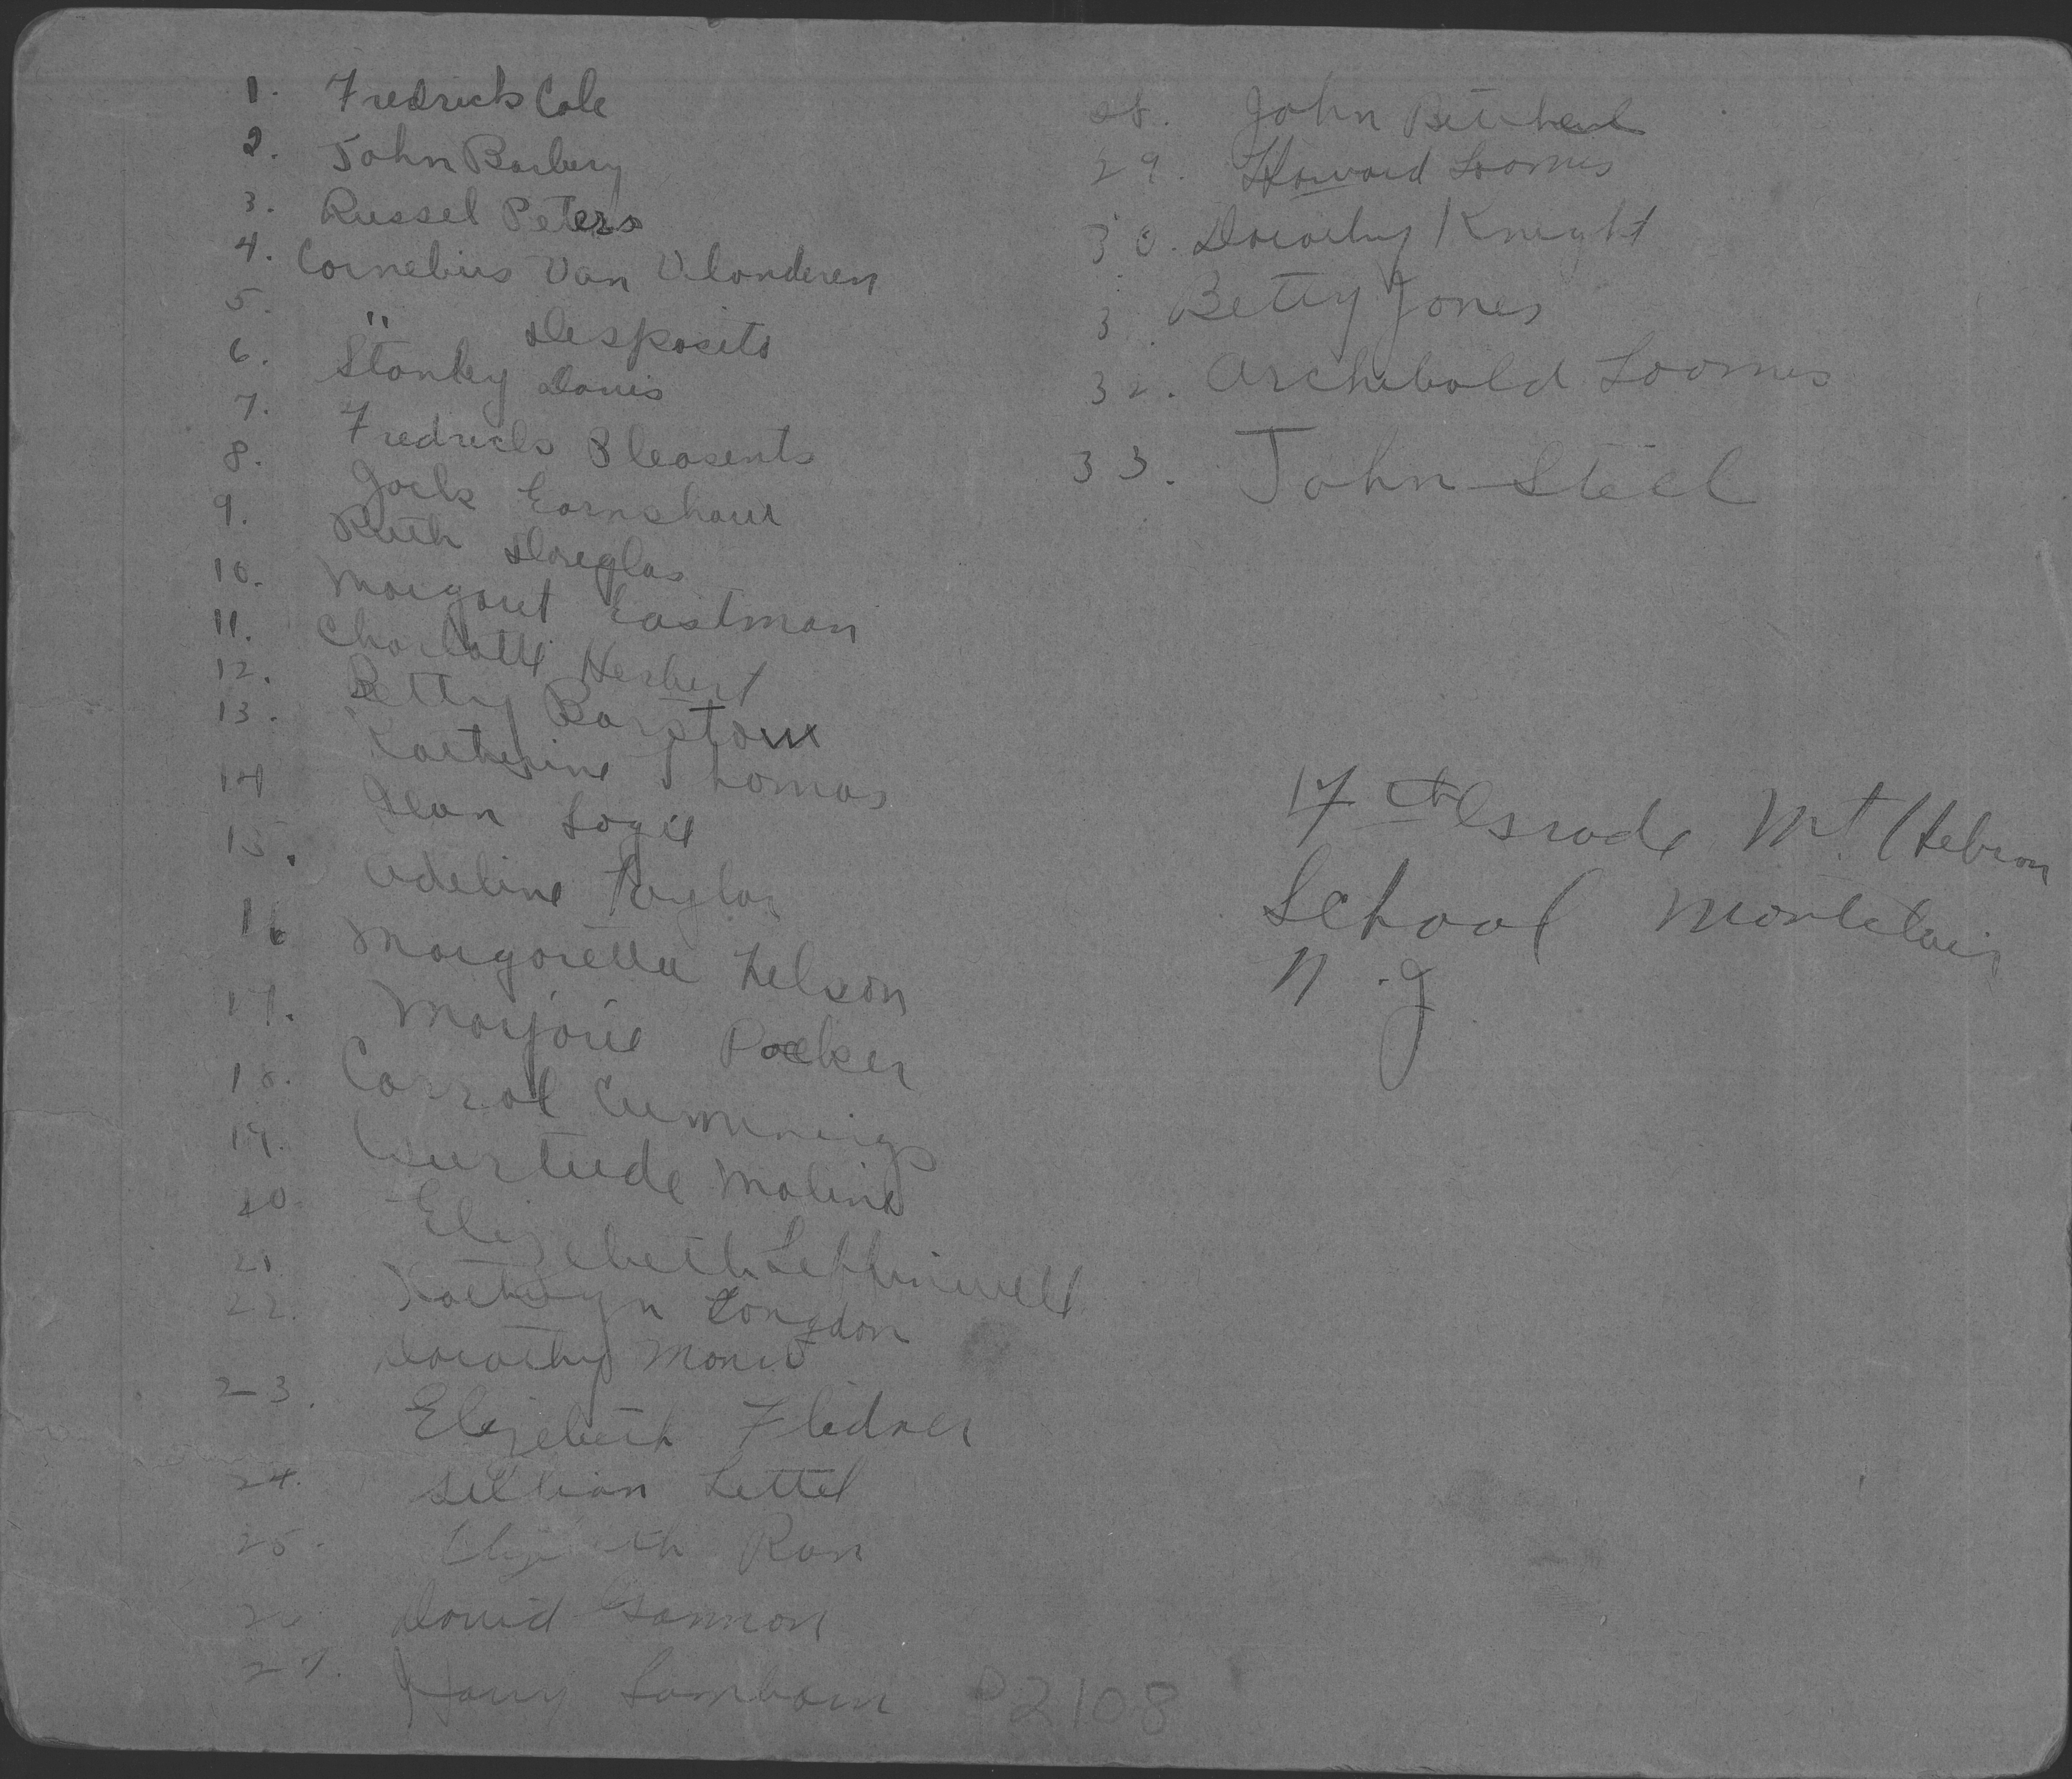 1. Fredrick Cole
2. John Barbery
3. Russel Peters
4. Cornelius Van Vlanderen
5. " Desposito
6. Stanley Davis
7. Fredrick Pleasents
8. Jack Earnshaw
9. Ruth Douglas
10. Margaret Eastman
11. Charlotte Herbert
12. Betty Barstow
13. Katherine Thomas
14 Jean Logie
15. Adeline Taylor
16 Margaretta Nelson
17. Marjorie Packer
18. Carrol Cummings
19. Gurtrude Maline
20. Elizebeth Leffinwell
21. Kathryn Longdon
22. Dorothy
23. Elizebeth Flidner
24. Lillian Littel
25. Ran
26 David Gannon
27. Harry
28. John
29. Howard Loomis
30. Dorothy Knight
3 Betty Jones
32. Archibald Loomis
33. John Steel
Grade Mt. Hebron
School Montclair
N.J
P2108